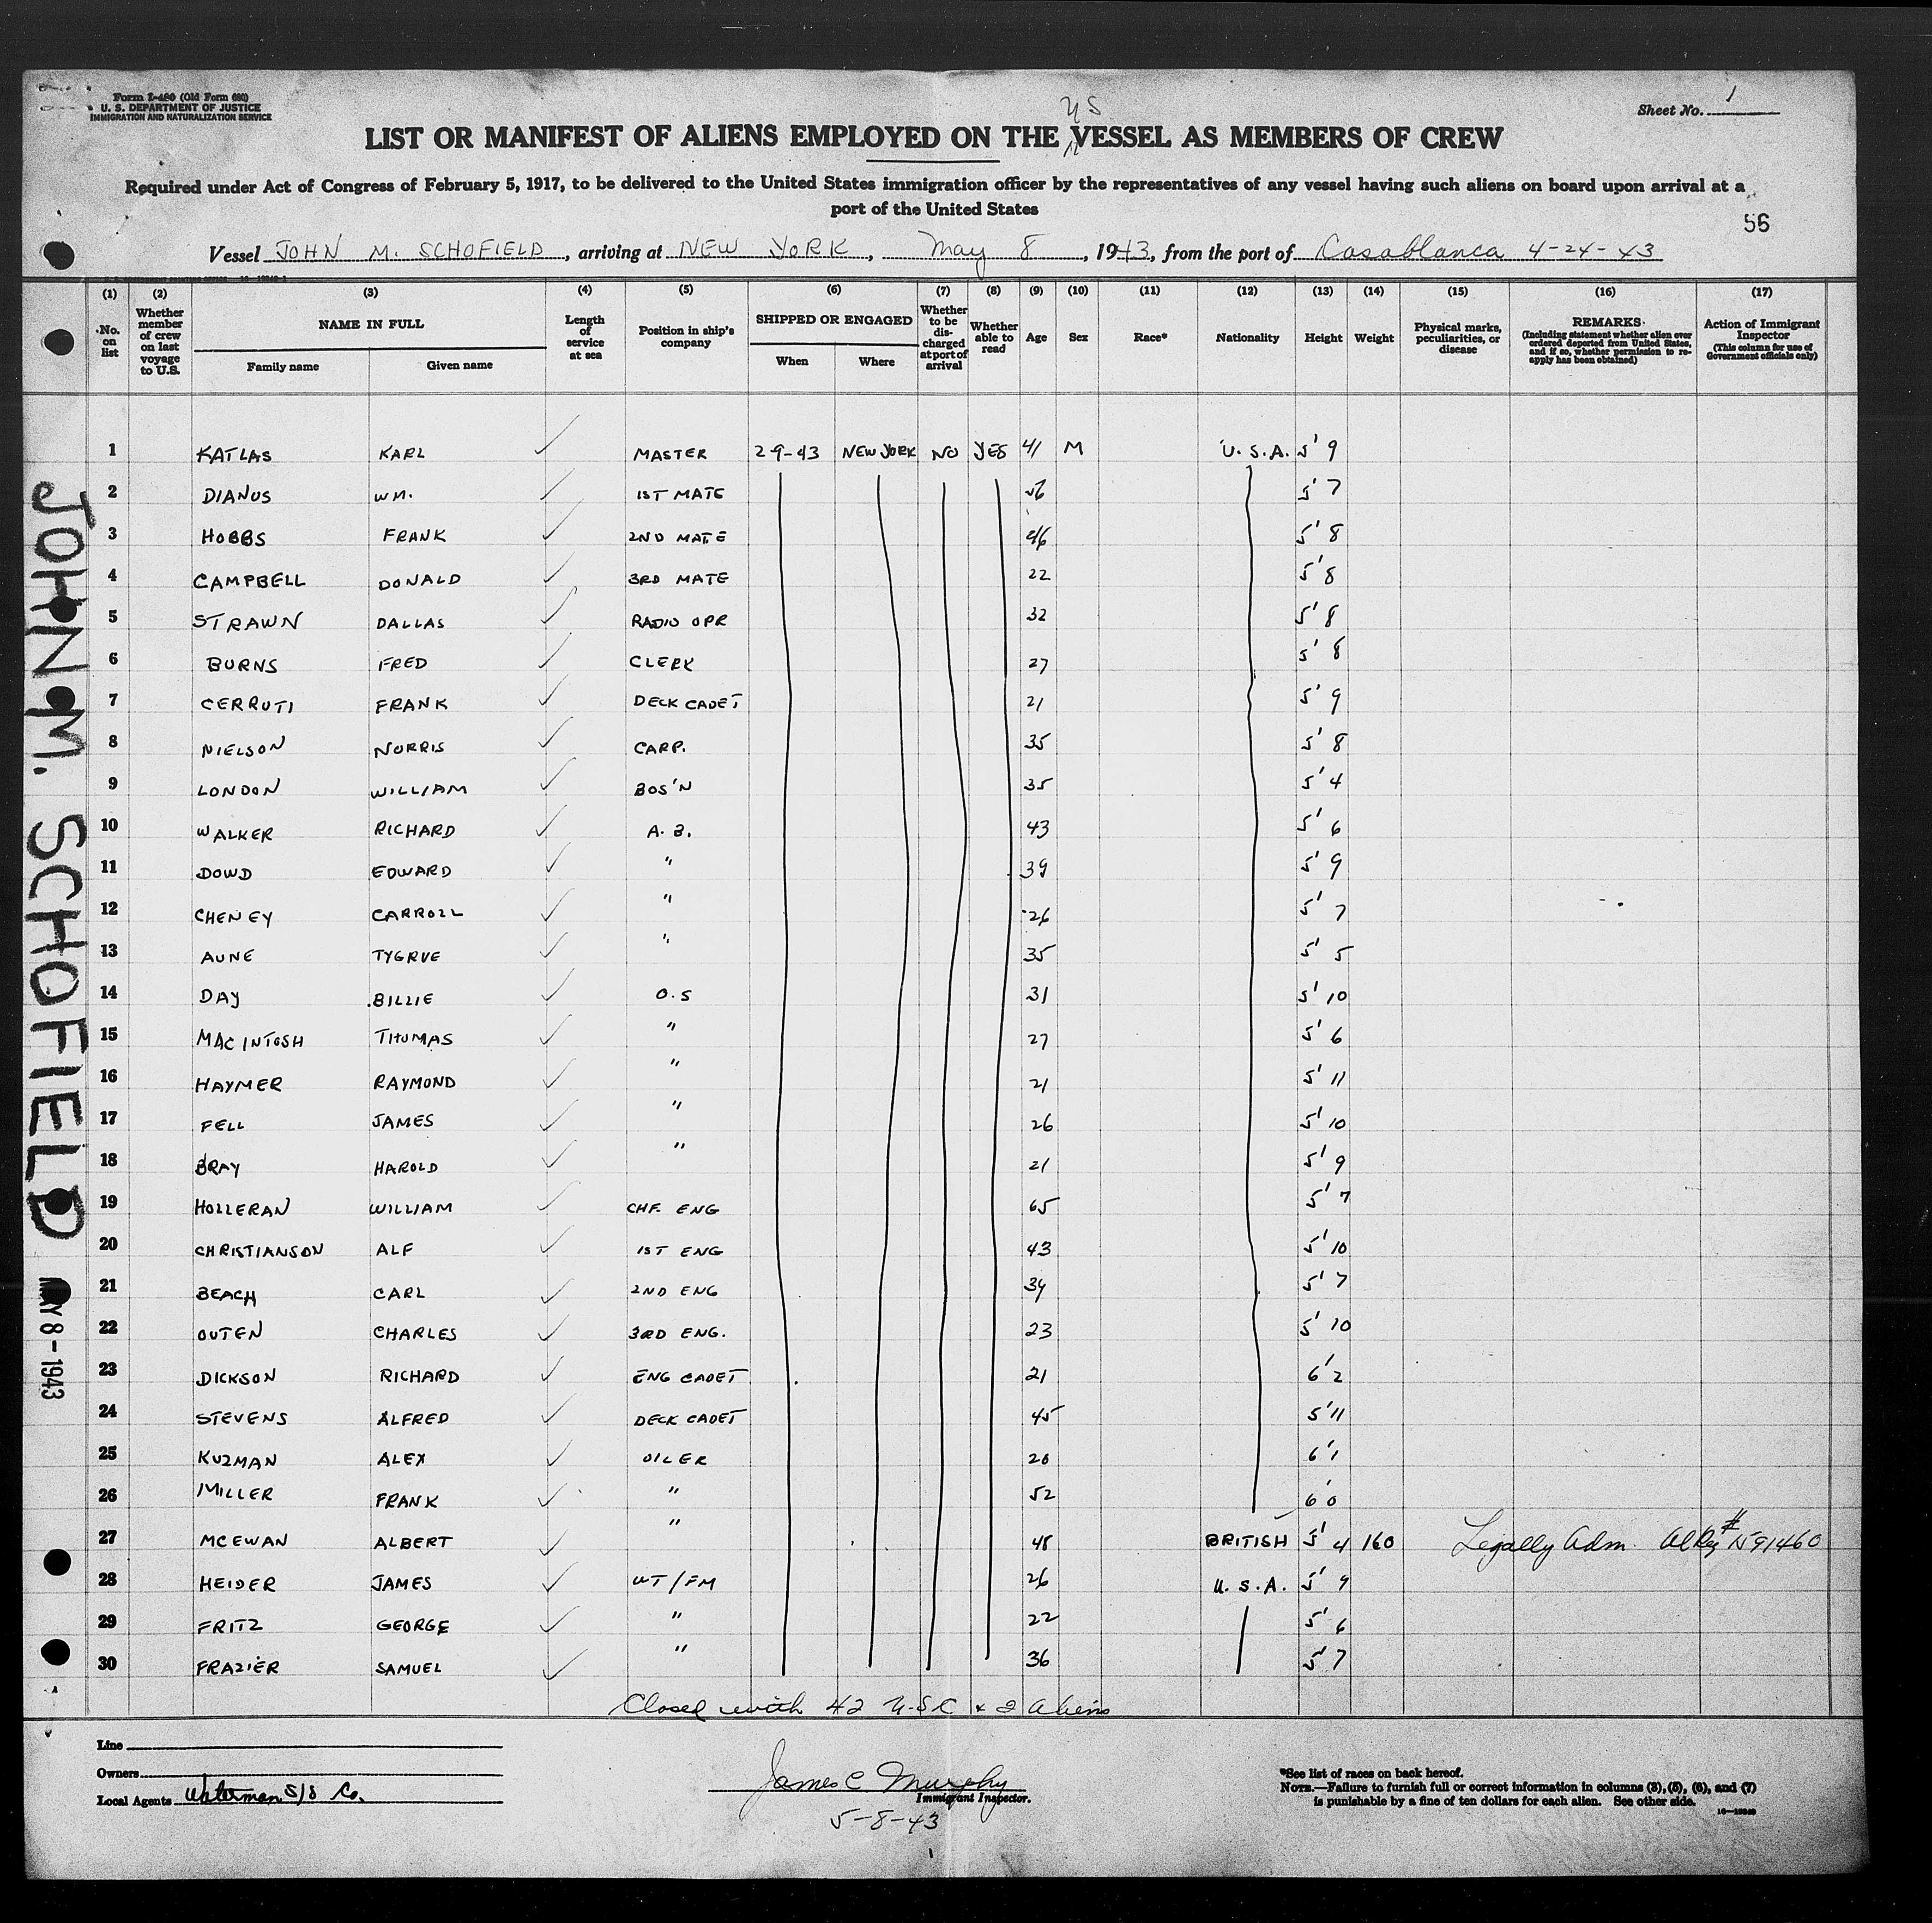 Form I-480 (Old Form 680)
U. S. DEPARTMENT OF JUSTICE
IMMIGRATION AND NATURALIZATION SERVICE
Sheet No. 1
US
LIST OR MANIFEST OF ALIENS EMPLOYED ON THE VESSEL AS MEMBERS OF CREW
Required under Act of Congress of February 5, 1917, to be delivered to the United States immigration officer by the representatives of any vessel having such aliens on board upon arrival at a
port of the United States
56
Vessel JOHN M. SCHOFIELD, arriving at NEW YORK, May 8, 1943, from the port of Casablanca 4-24-43
(1) (2) (3) (4) (5) (6) (7) (8) (9) (10) (11) (12) (13) (14) (15) (16) (17)
No. on list
Whether member of crew on last voyage to U.S.
NAME IN FULL
Family name
Given name
Length of service at sea
Position in ship's company
SHIPPED OR ENGAGED
When
Where
Whether to be discharged at port of arrival
Whether able to read
Age
Sex
Race*
Nationality
Height
Weight
Physical marks, peculiarities, or disease
REMARKS
(Including statement whether alien ever ordered deported from United States, and if so, whether permission to reapply has been obtained)
Action of Immigrant Inspector
(This column for use of Government officials only)
1 KATLAS KARL MASTER 2-9-43 NEW YORK NO YES 41 M U.S.A. 5' 9
2 DIANUS WM. 1ST MATE 5' 7
3 HOBBS FRANK 2ND MATE 46 5' 8
4 CAMPBELL DONALD 3RD MATE 22 5' 8
5 STRAWN DALLAS RADIO OPR 32 5' 8
6 BURNS FRED CLERK 27 5' 8
7 CERRUTI FRANK DECK CADET 21 5' 9
8 NIELSON NORRIS CARP. 35 5' 8
9 LONDON WILLIAM BOS'N 35 5' 4
10 WALKER RICHARD A. B. 43 5' 6
11 DOWD EDWARD " 39 5' 9
12 CHENEY CARROLL " 26 5' 7
13 AUNE TYGRVE " 35 5' 5
14 DAY BILLIE O.S 31 5' 10
15 MACINTOSH THOMAS " 27 5' 6
16 HAYMER RAYMOND " 21 5' 11
17 FELL JAMES " 26 5' 10
18 BRAY HAROLD " 21 5' 9
19 HOLLERAN WILLIAM CHF. ENG 65 5' 7
20 CHRISTIANSON ALF 1ST ENG 43 5' 10
21 BEACH CARL 2ND ENG 34 5' 7
22 OUTEN CHARLES 3RD ENG. 23 5' 10
23 DICKSON RICHARD ENG CADET 21 6' 2
24 STEVENS ALFRED DECK CADET 45 5' 11
25 KUZMAN ALEX OILER 20 6' 1
26 MILLER FRANK " 52 6' 0
27 MCEWAN ALBERT " 48 BRITISH 5' 4 160 Legally Adm. Al Reg # 1591460
28 HEIDER JAMES WT/FM 26 U.S.A. 5' 9
29 FRITZ GEORGE " 22 5' 6
30 FRAZIER SAMUEL " 36 5' 7
Closed with 42 USC & 2 Aliens
Line
Owners
Local Agents Waterman S/S Co.
James C Murphy
Immigrant Inspector.
5-8-43
*See list of races on back hereof.
NOTE.—Failure to furnish full or correct information in columns (3), (5), (6), and (7)
is punishable by a fine of ten dollars for each alien. See other side.
JOHN M. SCHOFIELD
MAY 8-1943